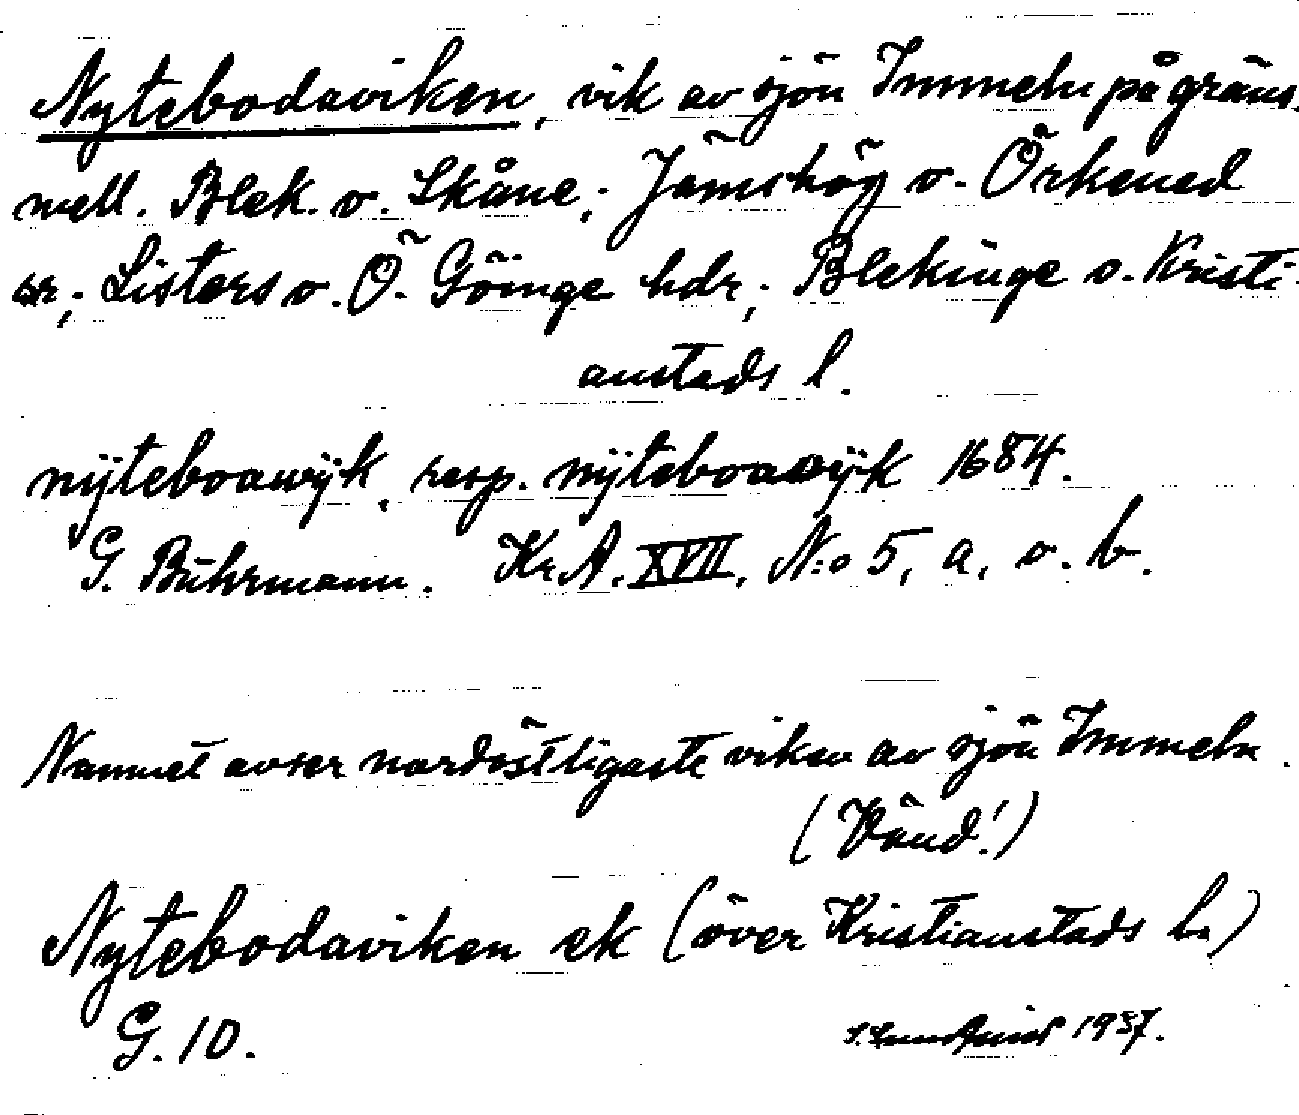 Nytebodaviken, vik av sjön Immeln på gräns.
mell. Blek. o. Skåne; Jämshög o. Örkened
snr; Listers o. Ö. Göinge hdr; Blekinge o. Kristi-
anstads l.
nÿteboawÿk, resp. nÿteboawÿk 1684.
G. Buhrmann. Kr.A. XVII, N:o 5, a, o. b.
Namnet avser nordöstligaste viken av sjön Immeln.
(Vänd!)
Nytebodaviken ek (över Kristianstads l.)
G. 10.
1937.